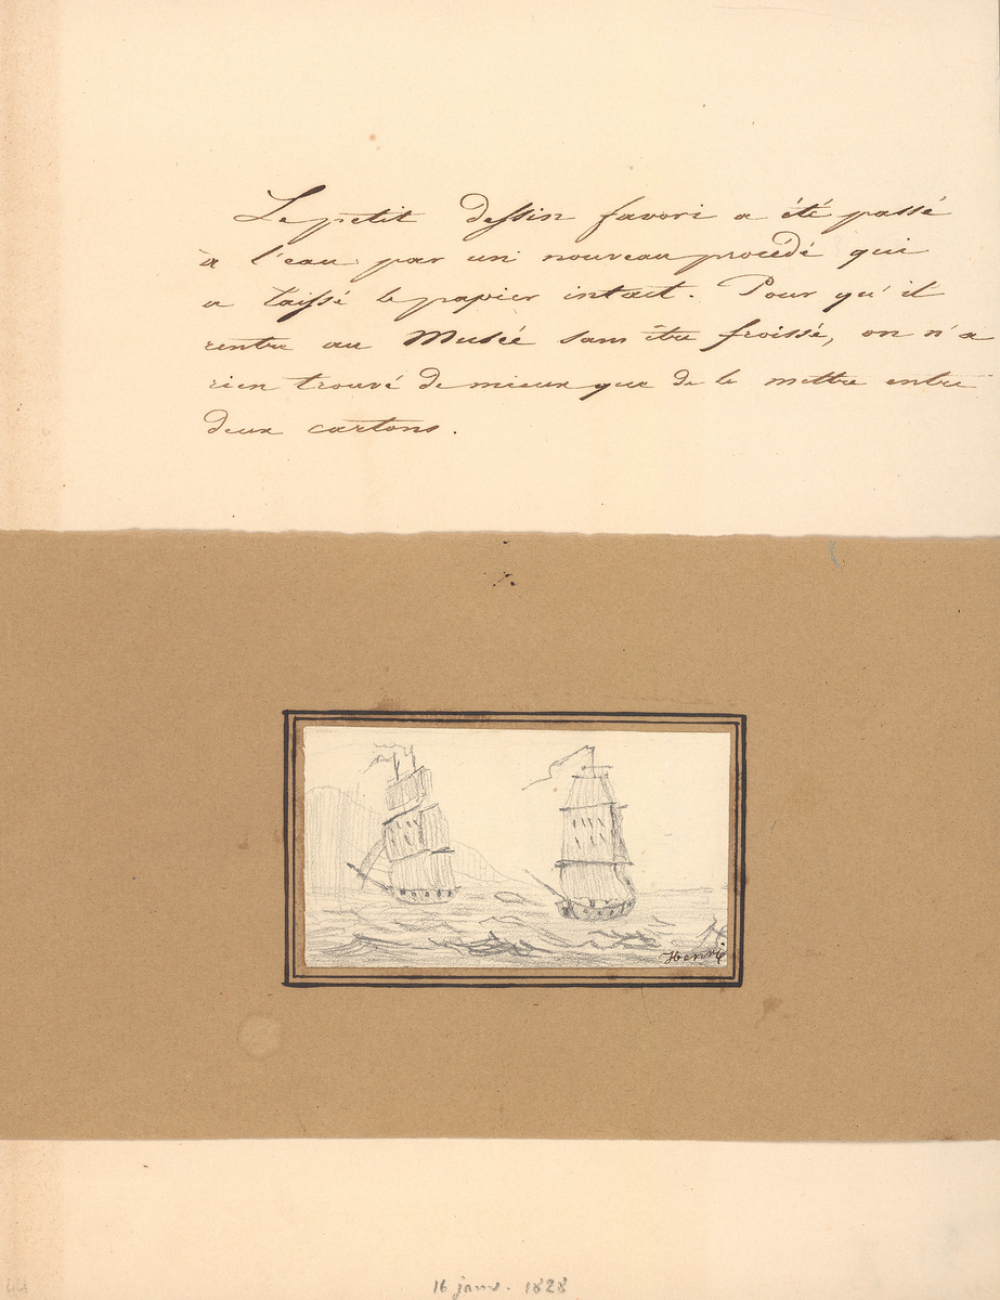 Le petit dessin favori a été passé
à l'eau par un nouveau procédé qui
a laissé le papier intact. Pour qu'il
rentre au Musée sans être froissé, on n'a
rien trouvé de mieux que de le mettre entre
deux cartons.
Henri
16 janv. 1828